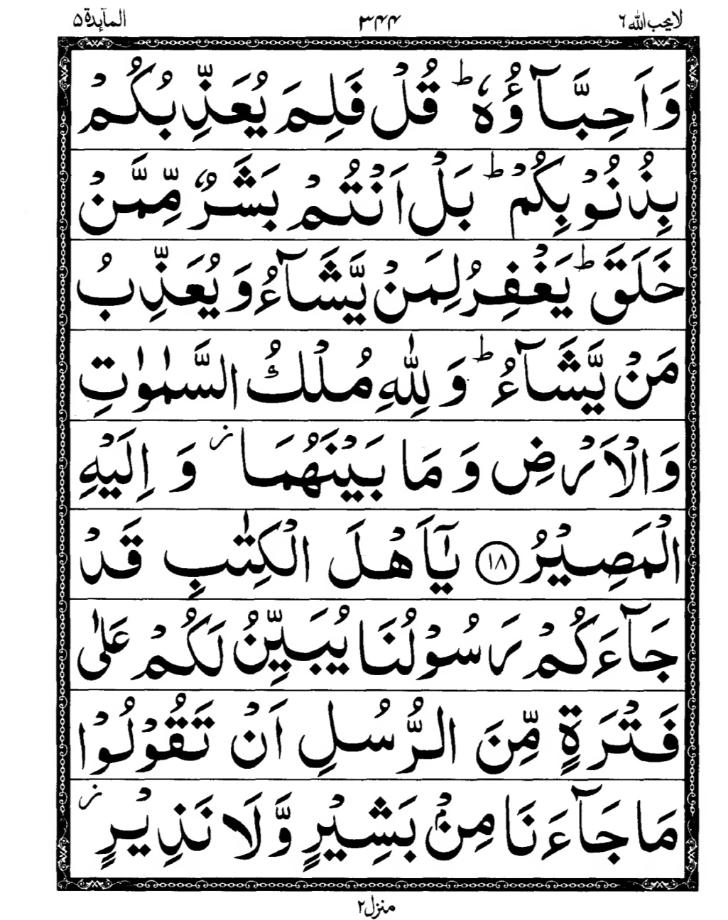 لايحب الله ٦ ٣٤٤ المآئدة ٥
وَاَحِبَّآؤُهٗ ؕ قُلْ فَلِمَ يُعَذِّبُكُمْ
بِذُنُوْبِكُمْ ؕ بَلْ اَنْتُمْ بَشَرٌ مِّمَّنْ
خَلَقَ ؕ يَغْفِرُ لِمَنْ يَّشَآءُ وَ يُعَذِّبُ
مَنْ يَّشَآءُ ؕ وَ لِلّٰهِ مُلْكُ السَّمٰوٰتِ
وَالْاَرْضِ وَ مَا بَيْنَهُمَا ؗ وَ اِلَيْهِ
الْمَصِيْرُ ﴿١٨﴾ يٰۤاَهْلَ الْكِتٰبِ قَدْ
جَآءَكُمْ رَسُوْلُنَا يُبَيِّنُ لَكُمْ عَلٰى
فَتْرَةٍ مِّنَ الرُّسُلِ اَنْ تَقُوْلُوْا
مَا جَآءَنَا مِنْۢ بَشِيْرٍ وَّلَا نَذِيْرٍ ؗ
منزل ٢